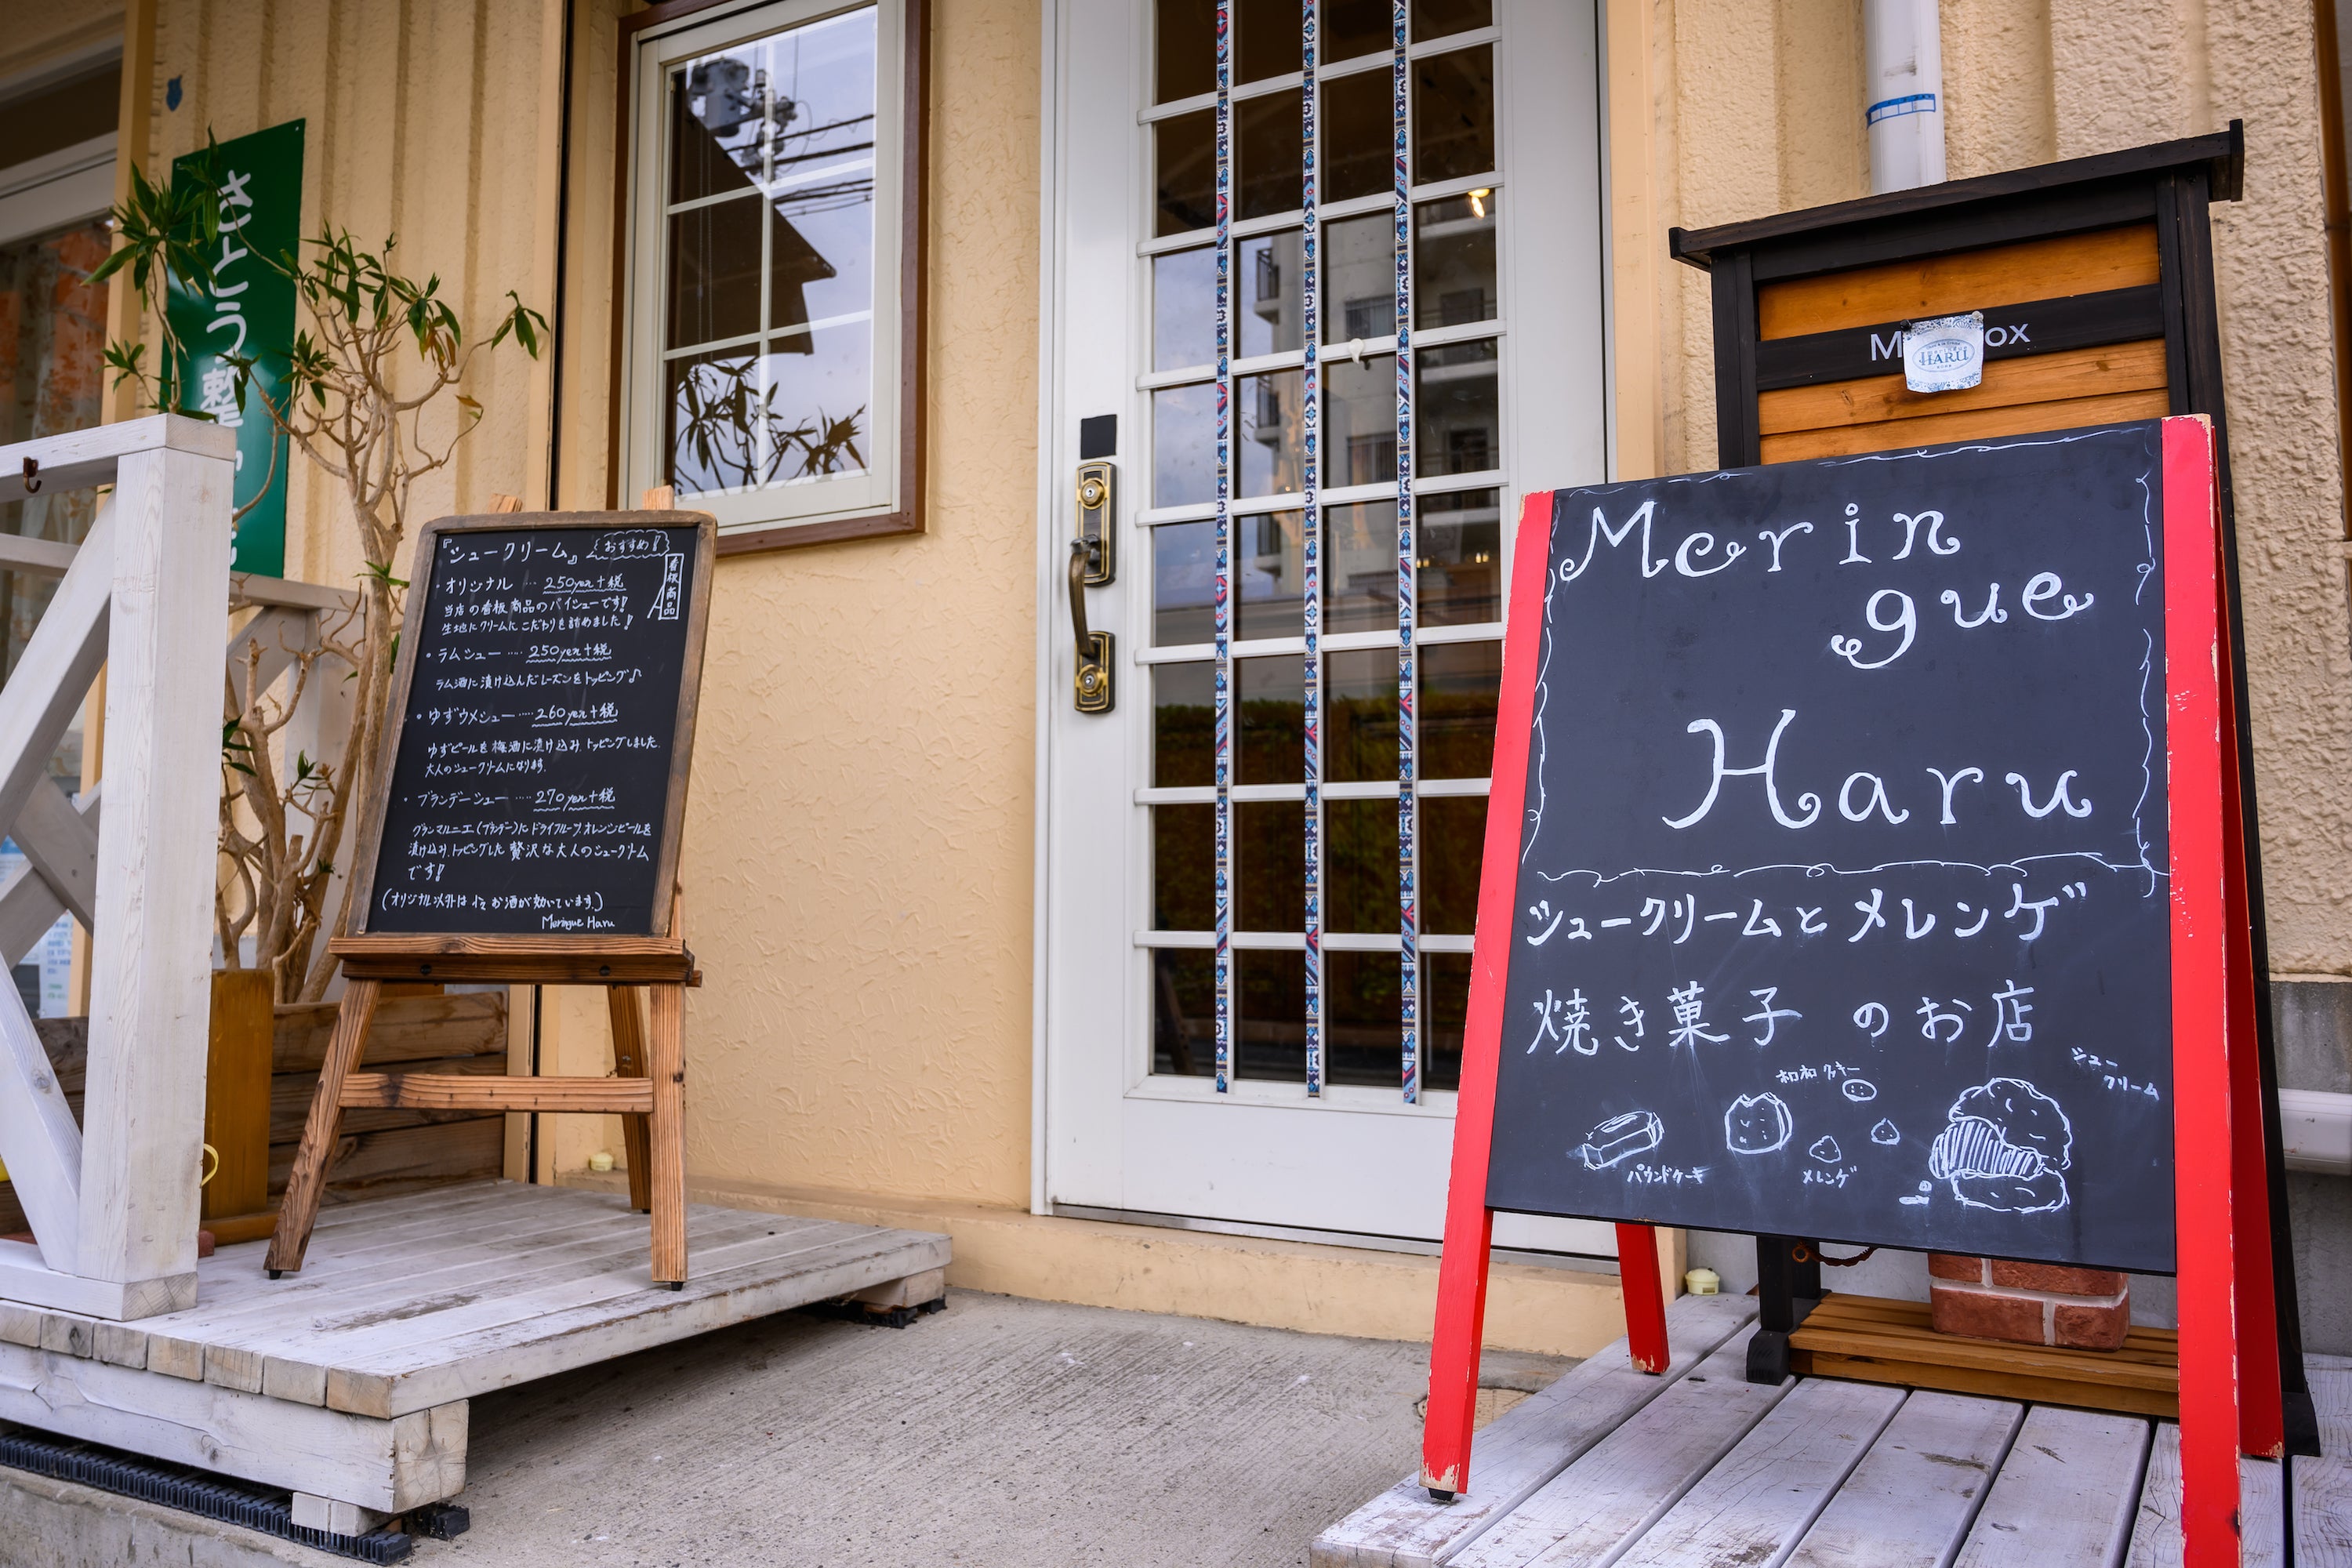 さとう整
『シュークリーム』
おすすめ!
看板商品
・オリジナル … 250yen+税
当店の看板商品のパイシューです!
生地にクリームにこだわりを詰めました!
・ラムシュー …‥ 250yen+税
ラム酒に漬け込んだレーズンをトッピング♪
・ゆずウメシュー …‥ 260yen+税
ゆずピールを梅酒に漬け込み、トッピングしました。
大人のシュークリームになります。
・ブランデーシュー …‥ 270yen+税
グランマルニエ(ブランデー)にドライフルーツ、オレンジピールを
漬け込み、トッピングした贅沢な大人のシュークリーム
です!
(オリジナル以外は お酒が効いています。)
Meringue Haru
HARU
Merin
gue
Haru
シュークリームとメレンゲ
焼き菓子 のお店
シュー
クリーム
和和クッキー
パウンドケーキ
メレンゲ